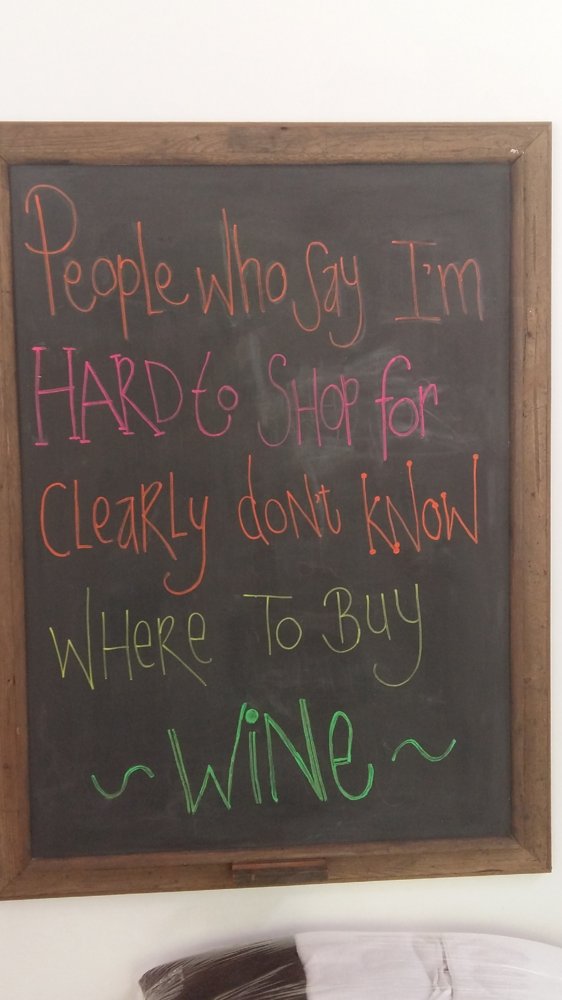 People who say I'm
HARD to SHOP for
CLeARLy doN't kNoW
WHeRe To Buy
~ WiNe ~